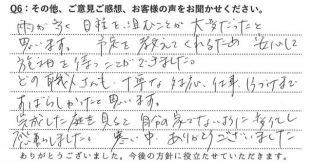 Q6：その他、ご意見ご感想、お客様の声をお聞かせください。
雨が多く 日程を組むことが 大変だったと
思います。 予定を教えてくれるため 安心して
施工を待つことができました。
どの職人さんも 丁寧な 仕事 片づけまで
すばらしかったと思います。
完成した庭を見ると 自分の家でないように
感動しました。 寒い中、ありがとうございました
ありがとうございました。今後の方針に役立たせていただきます。